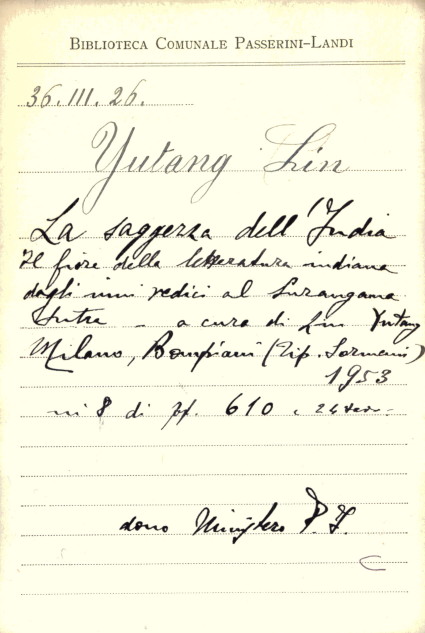 BIBLIOTECA COMUNALE PASSERINI-LANDI
36.III.26.
Yutang Lin
La saggezza dell'India
Il fiore della letteratura indiana
dagli inni vedici al Surangama
Sutra - a cura di Lin Yutang
Milano, Bompiani (Tip. Sormani)
1953
in 8 di pp. 610
dono Ministero P. I.